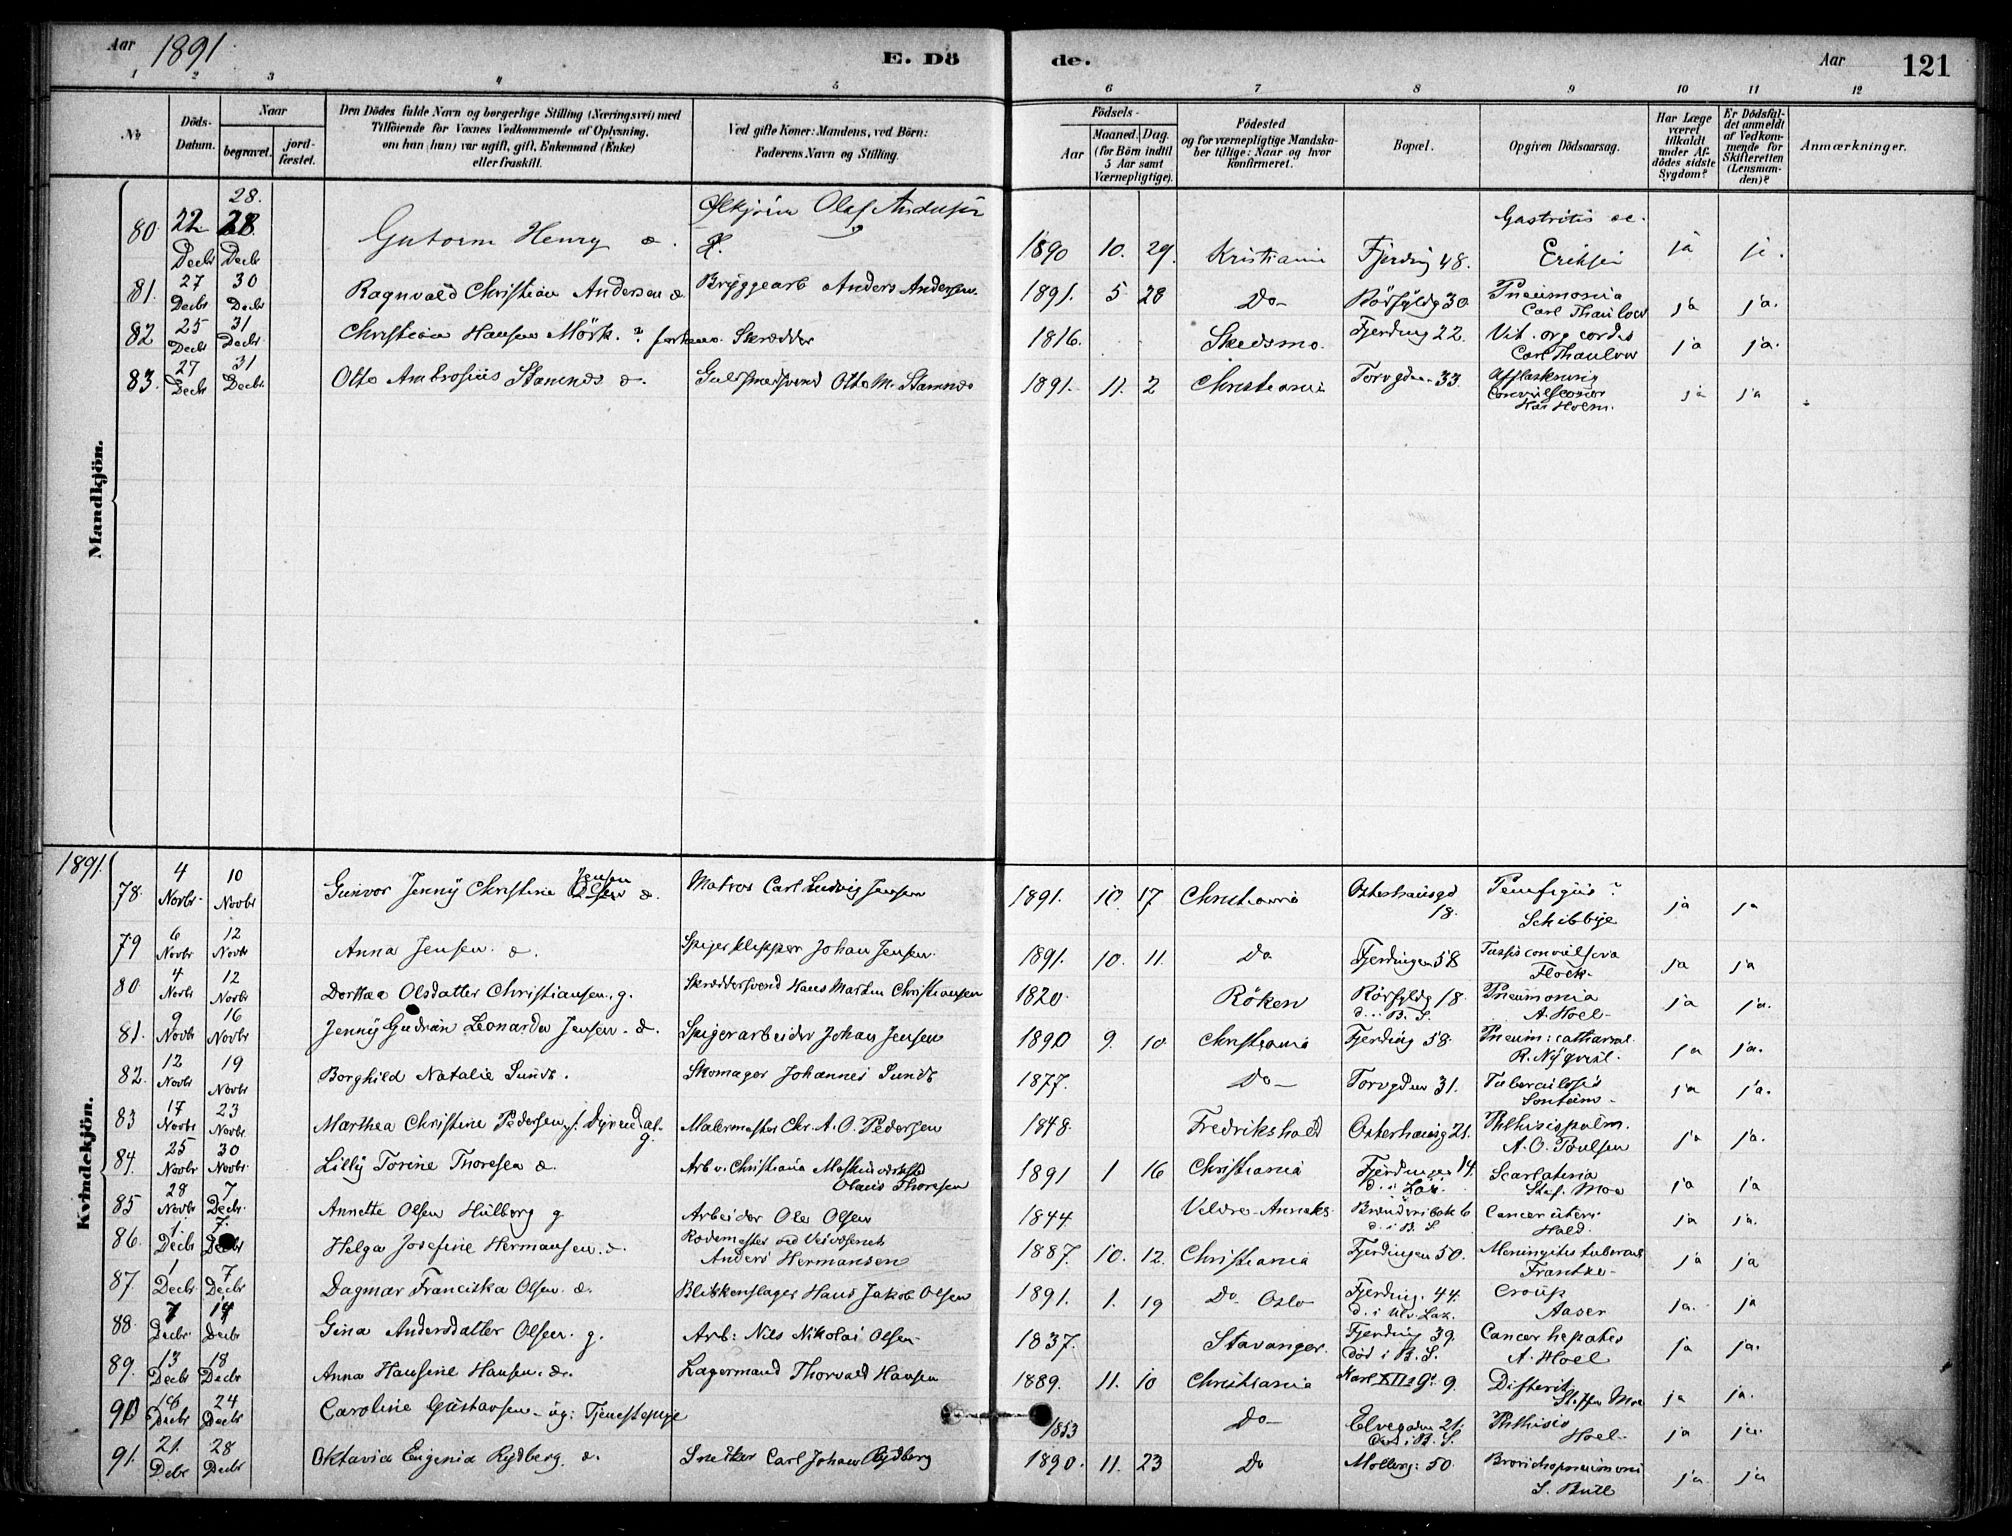 Aar 1891
E. Dö
de.
Aar
121
1 2 3 4 5 6 7 8 9 10 11 12
No
Döds-Datum.
Naar
begravet.
jord-fæstet.
Den Dödes fulde Navn og borgerlige Stilling (Næringsvei) med
Tilföiende for Voxnes Vedkommende af Oplysning,
om han (hun) var ugift, gift, Enkemand (Enke)
eller fraskilt.
Ved gifte Koner: Mandens, ved Börn:
Faderens Navn og Stilling.
Födsels-
Aar
Maaned. Dag.
(for Börn indtil
5 Aar samt
Værnepligtige).
Födested
og for værnepligtige Mandska-
ber tillige: Naar og hvor
konfirmeret.
Bopæl.
Opgiven Dödsaarsag.
Har Læge
været
tilkaldt
under Af-
dödes sidste
Sygdom?
Er Dödsfal-
det anmeldt
af Vedkom-
mende for
Skifteretten
(Lensman-
den)?
Anmærkninger.
Mandkjön.
80. 22 Decbr 28. 28 Decbr Gutorm Henry Olaf Andersen 1890 10. 29. Kristiania Fjerding 48. Gastritis ac. Eriksen ja ja.
81. 27 Decbr 30 Decbr Ragnvald Christian Andersen d. Bryggearb Anders Andersen. 1891. 5 28 Do Rörfyldg 30 Pneumonia Carl Thaulow ja ja.
82 25 Decbr 31 Decbr. Christian Hansen Mörk. ? forhenv. Skrædder 1816. Skedsmo. Fjerding 22. Vit. org cordis Carl Thaulow ja ja.
83. 27 Decbr 31 Decbr. Otto Ambrosius Stamnes d. Guldsmedsvend Otto M. Stamnes 1891. 11. 2 Christiania Torvgden 33. Convulsioner Holm. ja ja
Kvindekjön.
1891.
78. 4 Novbr 10 Novbr Gunvor Jenny Christine Olsen Jensen d. Matros Carl Ludvig Jensen 1891. 10. 17 Christiania Osterhausgd 18. Pemfigus? Schibbye ja ja
79 6 Novbr 12 Novbr Anna Jensen. d. Spigerklipper Johan Jensen. 1891. 10. 11. Do Fjerdingen 58 Tussis convulsiva Flock. ja ja
80. 4 Novbr 12 Novbr Dorthea Olsdatter Christiansen. g. Skræddersvend Hans Martin Christiansen 1820. Röken Rörfyldg 18. d. i B. S. Pneumonia A. Hoel ja ja.
81. 9 Novbr 16 Novbr Jenny Gudrun Leonarda Jensen. d. Spigerarbeider Johan Jensen 1890 9. 10 Christiania Fjerding 58. Pneum: catharral R. Nyqvist. ja ja.
82. 12 Novbr 19 Novbr Borghild Natalie Sundt. Skomager Johannes Sundt 1877. Do Torvgden 31. Tuberculosis Sontum ja ja.
83 17 Novbr 23 Novbr. Marthea Christine Pedersen f. Dyrendal. g. Malermester Chr. A. O. Pedersen 1848. Fredrikshald Osterhausg 21. Phthisis pulm. A. O. Poulsen ja ja.
84. 25 Novbr 30 Novbr. Lilly Torine Thoresen d. Arb v. Christiania Mek Værksted Olaus Thoresen 1891 1 16 Christiania Fjerdingen 14. d. i Laz. Scarlatina Stef. Moe ja ja
85 28 Novbr 7 Decbr. Annette Olsen Hulberg g Arbeider Ole Olsen 1844 Veldre Anneks Brænderibak 6 d. i B. S. Cancer uteri Hald. ja ja.
86. 1 Decbr 7. Decbr Helga Josefine Hermansen. d. Rodemester ved Veivæsenet Anders Hermansen 1887. 10. 12. Christiania Fjerdingen 50. Meningitis tubercul Frantze ja ja
87. 1 Decbr 7 Decbr Dagmar Franciska Olsen. d. Blikkenslager Hans Jakob Olsen 1891. 1. 19 Do Oslo Fjerding. 44. d. i Ulv. Laz. Croup Aaser ja. ja
88. 7 Decbr 14 Decbr Gina Andersdatter Olsen. g. Arb: Nils Nikolai Olsen 1837. Stavanger. Fjerding 39. död i B. S. Cancer hepatis A. Hoel ja ja.
89. 13 Decbr 18 Decbr Anna Hansine Hansen. d. Lagermand Thorvald Hansen 1889. 11. 10 Christiania Karl XIIs G. 9. Difterit Steffen Moe ja ja.
90 16 Decbr 24 Decbr Caroline Gustavsen ug: Tjenestepige 1853 Do Elvegaden 21. död i B. S. Phthisis Hoel ja ja.
91. 21. Decbr 28 Decbr Oktavia Eugenia Rydberg. d. Snedker Carl Johan Rydberg 1890. 11. 23 Do Mollerg: 50. Bronchopneumoni S. Bull ja. ja